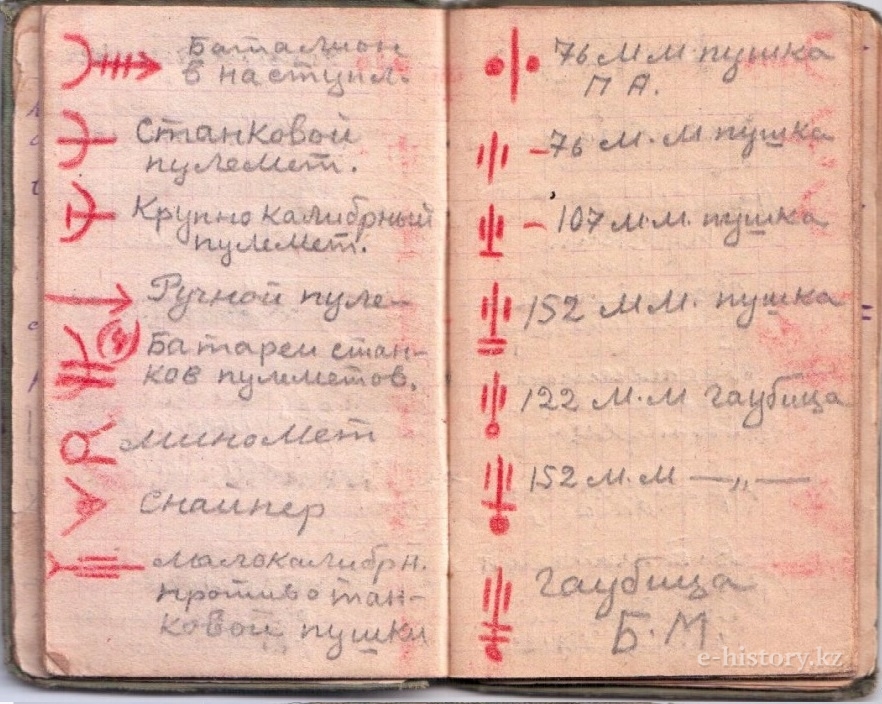 Баталион
в наступл.
Станковой
пулемет.
Крупно калибрный
пулемет.
Ручной пуле-
Батареи стан-
ков пулеметов.
миномет
Снайпер
малокалибрн.
противотан-
ковой пушки
76 м.м пушка
П А.
-76 м.м пушка
-107 м.м. пушка
152 м.м. пушка
122 м.м гаубица
152 м.м — „ —
гаубица
Б.М.
e-history.kz